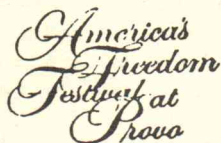 America's
Freedom
Festival at
Provo